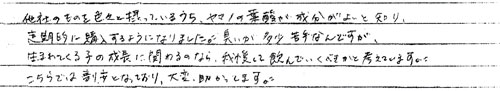 他社のものを色々と摂っているうち、ヤマノの葉酸が成分がよいと知り、
定期的に購入するようになりました。臭いが多少苦手なんですが、
生まれてくる子の成長に関わるのなら、我慢して飲んでいくべきかと考えています。
こちらでは割安となっており、大変、助かってます。